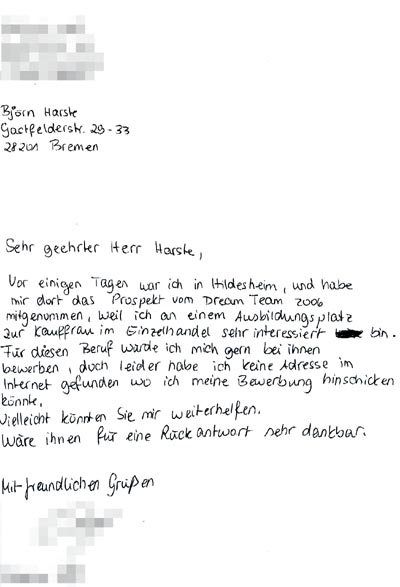 Björn Harste
Gastfelderstr. 29-33
28201 Bremen
Sehr geehrter Herr Harste,
Vor einigen Tagen war ich in Hildesheim, und habe
mir dort das Prospekt vom Dream Team 2006
mitgenommen, weil ich an einem Ausbildungsplatz
zur Kauffrau im Einzelhandel sehr interessiert bin.
Für diesen Beruf würde ich mich gern bei ihnen
bewerben, doch leider habe ich keine Adresse im
Internet gefunden wo ich meine Bewerbung hinschicken
könnte.
Vielleicht könnten Sie mir weiterhelfen.
Wäre ihnen für eine Rückantwort sehr dankbar.
Mit freundlichen Grüßen